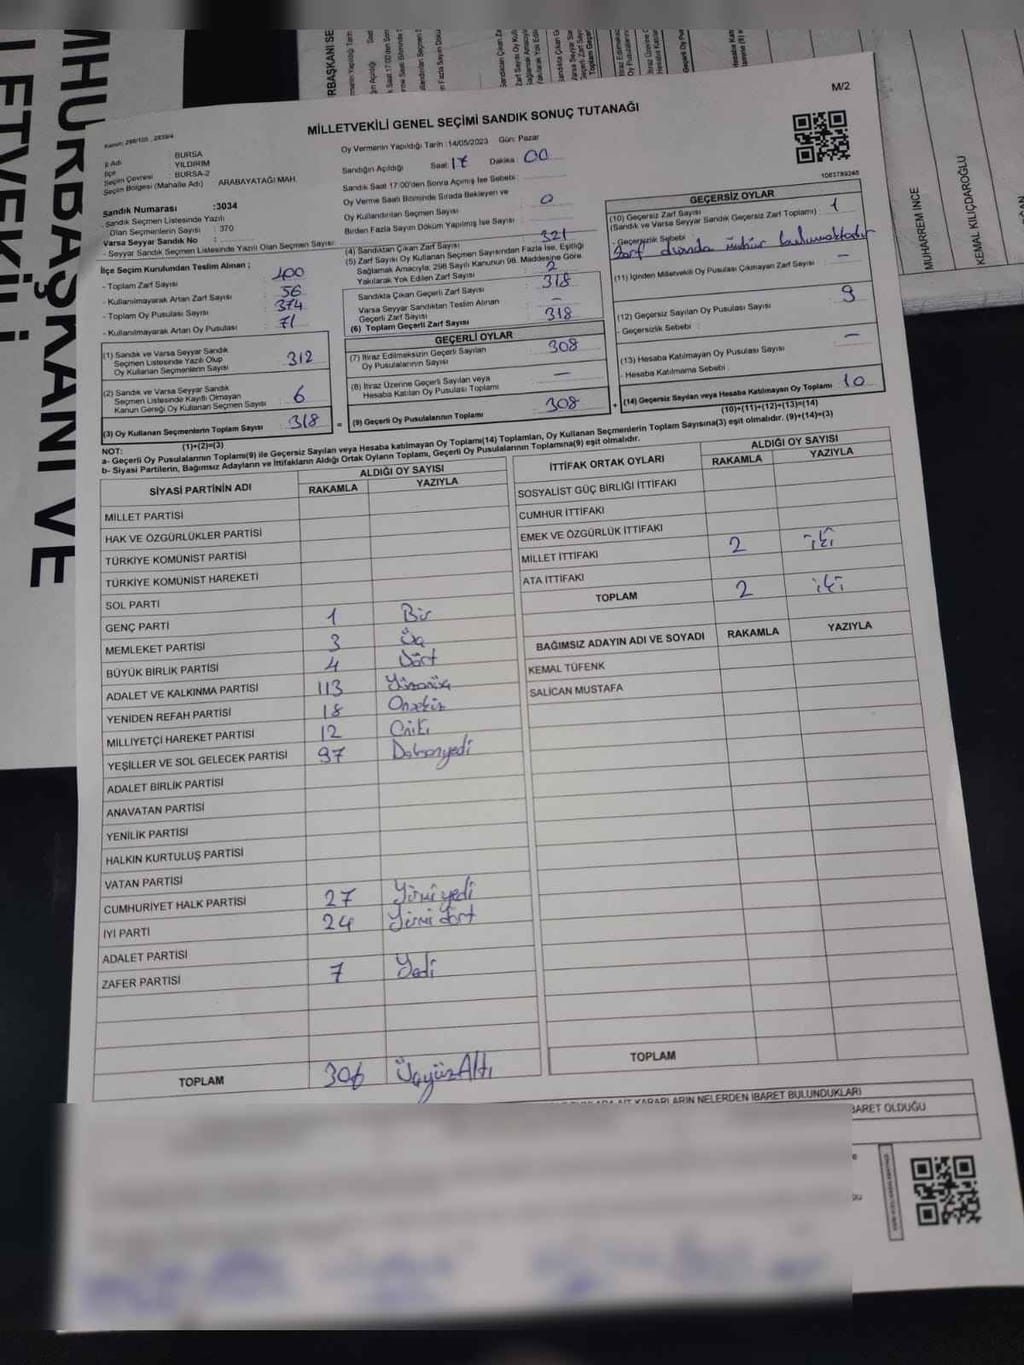 MHURBAŞKANI VE
LETVEKİLİ
RBAŞKANI SE
MUHARREM İNCE
KEMAL KILIÇDAROĞLU
M/2
MİLLETVEKİLİ GENEL SEÇİMİ SANDIK SONUÇ TUTANAĞI
Oy Vermenin Yapıldığı Tarih : 14/05/2023 Gün: Pazar
İl Adı : BURSA
İlçe : YILDIRIM
Seçim Çevresi : BURSA-2
Seçim Bölgesi (Mahalle Adı) ARABAYATAĞI MAH.
Sandık Numarası :3034
Sandık Seçmen Listesinde Yazılı
Olan Seçmenlerin Sayısı : 370
Varsa Seyyar Sandık No :
- Seyyar Sandık Seçmen Listesinde Yazılı Olan Seçmen Sayısı:
İlçe Seçim Kurulundan Teslim Alınan ;
- Toplam Zarf Sayısı 400
- Kullanılmayarak Artan Zarf Sayısı 56
- Toplam Oy Pusulası Sayısı 374
- Kullanılmayarak Artan Oy Pusulası 71
(1) Sandık ve Varsa Seyyar Sandık
Seçmen Listesinde Yazılı Olup
Oy Kullanan Seçmenlerin Sayısı 312
(2) Sandık ve Varsa Seyyar Sandık
Seçmen Listesinde Kayıtlı Olmayan
Kanun Gereği Oy Kullanan Seçmen Sayısı 6
(3) Oy Kullanan Seçmenlerin Toplam Sayısı 318
(1)+(2)=(3)
Sandığın Açıldığı Saat: 17 Dakika : 00
Sandık Saat 17:00'den Sonra Açılmış İse Sebebi :
Oy Verme Saati Bitiminde Sırada Bekleyen ve
Oy Kullandırılan Seçmen Sayısı : 0
Birden Fazla Sayım Döküm Yapılmış İse Sayısı :
(4) Sandıktan Çıkan Zarf Sayısı 321
(5) Zarf Sayısı Oy Kullanan Seçmen Sayısından Fazla İse, Eşitliği
Sağlamak Amacıyla, 298 Sayılı Kanunun 98. Maddesine Göre
Yakılarak Yok Edilen Zarf Sayısı 2
Sandıkta Çıkan Geçerli Zarf Sayısı 318
Varsa Seyyar Sandıktan Teslim Alınan
Geçerli Zarf Sayısı –
(6) Toplam Geçerli Zarf Sayısı 318
GEÇERLİ OYLAR
(7) İtiraz Edilmeksizin Geçerli Sayılan
Oy Pusulalarının Sayısı 308
(8) İtiraz Üzerine Geçerli Sayılan veya
Hesaba Katılan Oy Pusulası Toplamı –
(9) Geçerli Oy Pusulalarının Toplamı 308
1083789248
GEÇERSİZ OYLAR
(10) Geçersiz Zarf Sayısı
(Sandık ve Varsa Seyyar Sandık Geçersiz Zarf Toplamı) : 1
- Geçersizlik Sebebi :
Zarf dışında mühür bulunmaktadır
(11) İçinden Milletvekili Oy Pusulası Çıkmayan Zarf Sayısı –
(12) Geçersiz Sayılan Oy Pusulası Sayısı 9
- Geçersizlik Sebebi :
(13) Hesaba Katılmayan Oy Pusulası Sayısı –
- Hesaba Katılmama Sebebi :
(14) Geçersiz Sayılan veya Hesaba Katılmayan Oy Toplamı 10
(10)+(11)+(12)+(13)=(14)
NOT:
a- Geçerli Oy Pusulalarının Toplamı(9) ile Geçersiz Sayılan veya Hesaba katılmayan Oy Toplamı(14) Toplamları, Oy Kullanan Seçmenlerin Toplam Sayısına(3) eşit olmalıdır. (9)+(14)=(3)
b- Siyasi Partilerin, Bağımsız Adayların ve İttifakların Aldığı Ortak Oyların Toplamı, Geçerli Oy Pusulalarının Toplamına(9) eşit olmalıdır.
SİYASİ PARTİNİN ADI ALDIĞI OY SAYISI
RAKAMLA YAZIYLA
MİLLET PARTİSİ
HAK VE ÖZGÜRLÜKLER PARTİSİ
TÜRKİYE KOMÜNİST PARTİSİ
TÜRKİYE KOMÜNİST HAREKETİ
SOL PARTİ
GENÇ PARTİ 1 Bir
MEMLEKET PARTİSİ 3 Üç
BÜYÜK BİRLİK PARTİSİ 4 Dört
ADALET VE KALKINMA PARTİSİ 113
YENİDEN REFAH PARTİSİ 18 Onsekiz
MİLLİYETÇİ HAREKET PARTİSİ 12 Oniki
YEŞİLLER VE SOL GELECEK PARTİSİ 97 Doksanyedi
ADALET BİRLİK PARTİSİ
ANAVATAN PARTİSİ
YENİLİK PARTİSİ
HALKIN KURTULUŞ PARTİSİ
VATAN PARTİSİ
CUMHURİYET HALK PARTİSİ 27 Yirmi yedi
İYİ PARTİ 24 Yirmi dört
ADALET PARTİSİ
ZAFER PARTİSİ 7 Yedi
TOPLAM 306 ÜçyüzAltı
İTTİFAK ORTAK OYLARI ALDIĞI OY SAYISI
RAKAMLA YAZIYLA
SOSYALİST GÜÇ BİRLİĞİ İTTİFAKI
CUMHUR İTTİFAKI
EMEK VE ÖZGÜRLÜK İTTİFAKI
MİLLET İTTİFAKI 2 iki
ATA İTTİFAKI
TOPLAM 2 iki
BAĞIMSIZ ADAYIN ADI VE SOYADI RAKAMLA YAZIYLA
KEMAL TÜFENK
SALİCAN MUSTAFA
TOPLAM
KARARLARIN NELERDEN İBARET BULUNDUKLARI
BARET OLDUĞU